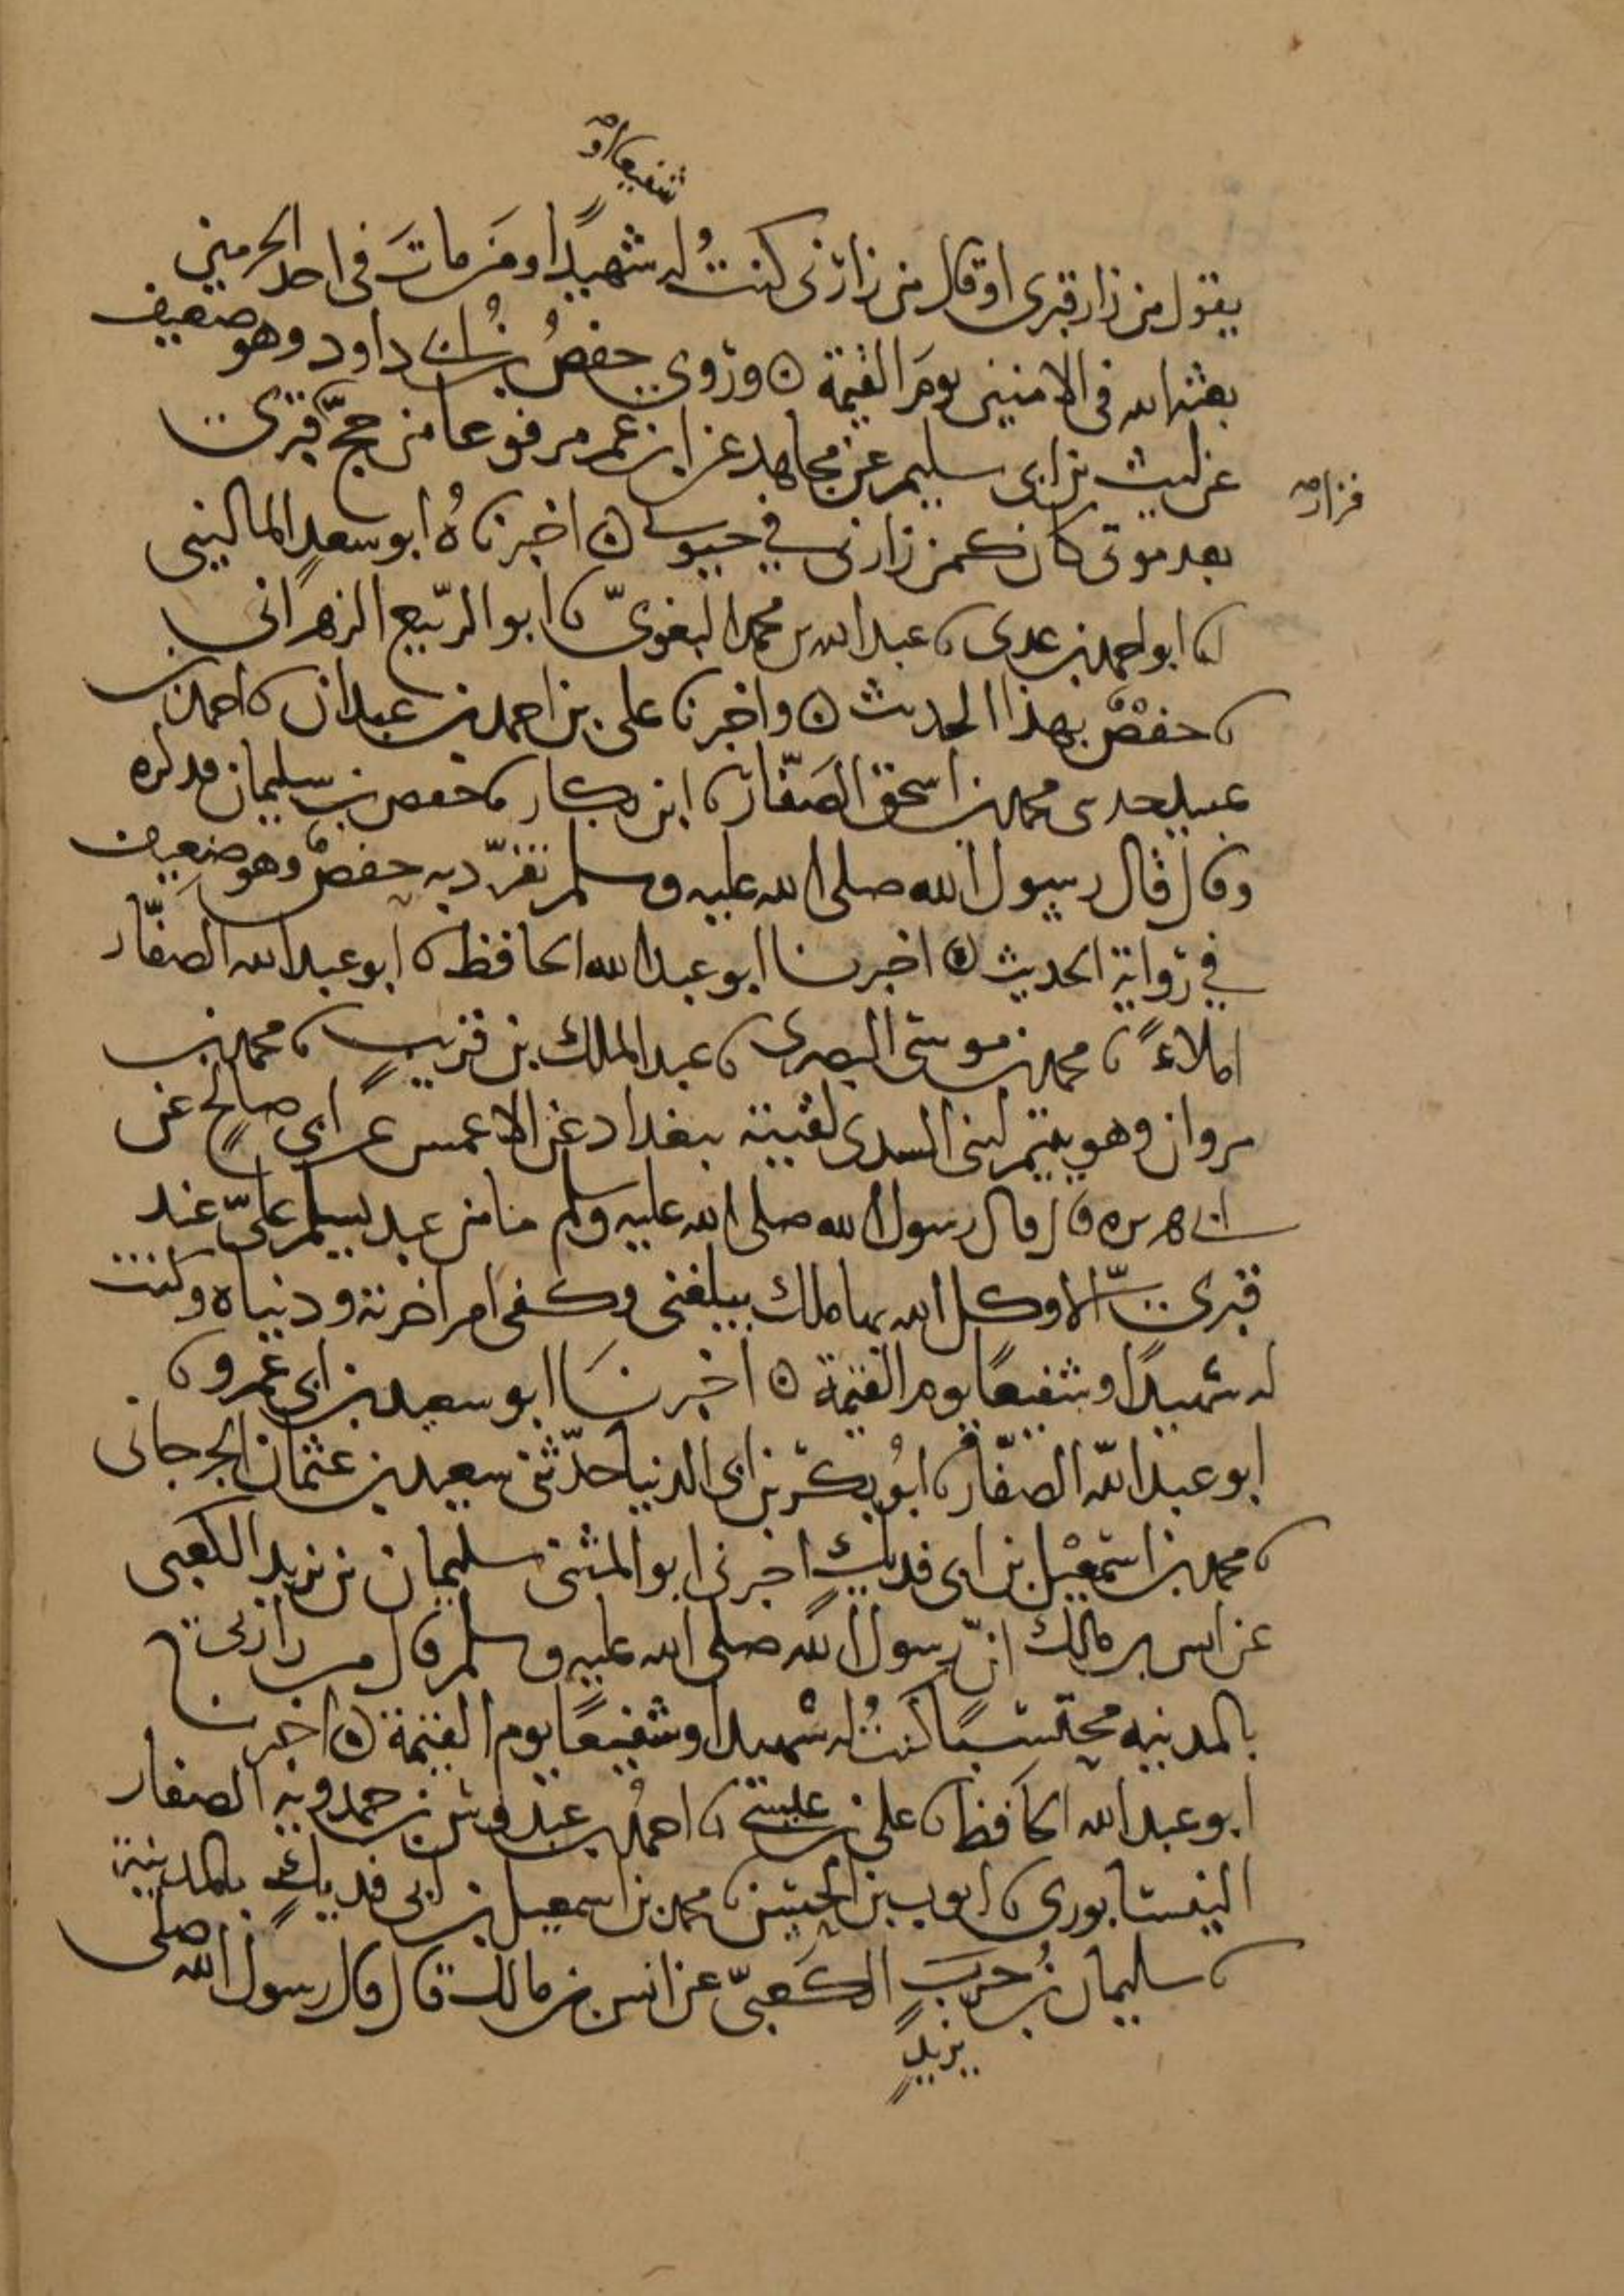 شفيعا او
يقول من زار قبرى او قال من زارنى كنتُ له شهيدًا ومَن ماتَ فى احد الحرمين
بعثه الله فى الامنين يومَ القيمة ۞ ورُوى حفصُ بنُ ابى داود وهو ضعيف
عن ليث بن ابى سليم عن مجاهد عن ابن عمر مرفوعا من حجّ قبرى
فزار
بعد موتى كان كمن زارنى فى حيوتى ۞ اخبرناهُ ابو سعدٍ المالينى
نا ابو احمد بن عدى نا عبد الله بن محمد البغوىّ نا ابو الرّبيع الزهرانى
نا حفصٌ بهذا الحديث ۞ واخبرنا على بن احمد بن عبدان نا احمد بن
عبيد حدثنى محمد بن اسحق الصَفّار نا ابن بكار نا حفص بن سليمان فذكره
وقال قال رسول الله صلى الله عليه وسلم تفرّد به حفصٌ وهو ضعيف
فى رواية الحديث ۞ اخبرنا ابو عبد الله الحافظ نا ابو عبد الله الصفّار
املاءً نا محمد بن موسى البصرى نا عبد الملك بن قريبٍ نا محمد بن
مروان وهو يتيم لبنى السدى لقيته ببغداد عن الاعمش عن ابى صالحٍ عن
ابى هريره قال قال رسول الله صلى الله عليه وسلم ما من عبد يسلم علىّ عند
قبرى الّا وكل الله بها ملك يبلغنى وكفى امر اخرته ودنياه وكنت
له شهيدًا وشفيعًا يوم القيمة ۞ اخبرنَا ابو سعيد بن ابى عمرو نا
ابو عبد الله الصفّار نا ابُو بكر بن ابى الدنيا حدّثنى سعيد بن عثمان الجرجانى
نا محمد بن اسمعيل بن ابى فديكٍ اخبرنى ابو المثنى سليمان بن يزيد الكعبى
عن انس بن مالك انّ رسول الله صلى الله عليه وسلم قال من زارنى
بالمدينه محتسبًا كنتُ له شهيدا وشفيعًا يوم القيمة ۞ اخبرنا
ابو عبد الله الحافظ نا على بن عيسى نا احمدُ بن عبدوش بن حمدويه الصفار
النيسابورى نا ايوب بن الحسن نا محمد بن اسمعيل بن ابى فديكٍ بالمدينة
نا سليمان بنُ حربَ الكَعبىّ عن انس بن مالك قال قال رسول الله صلى
يزيدٍ